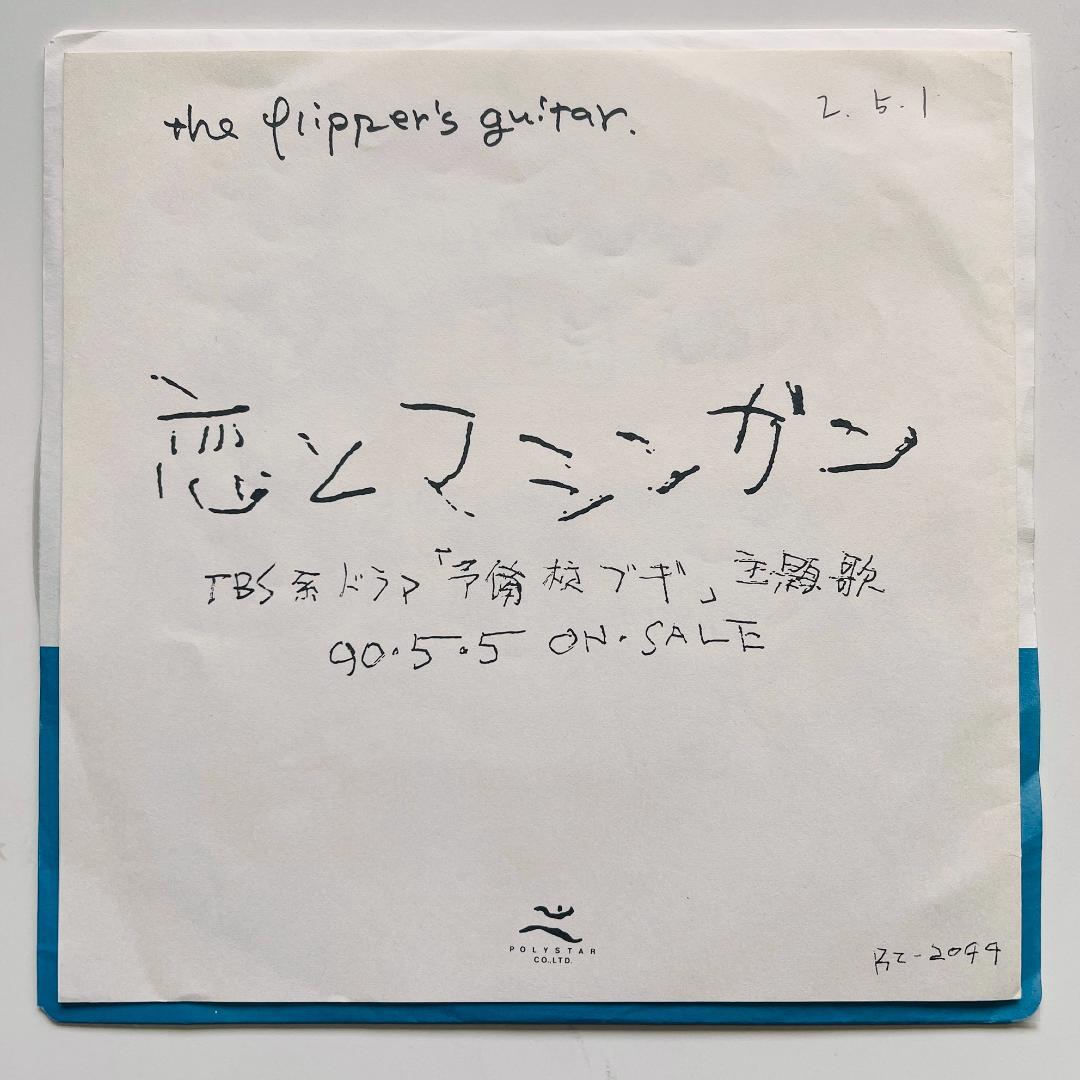 the flipper's guitar.
2.5.1
恋とマシンガン
TBS系ドラマ「予備校ブギ」主題歌
90.5.5 ON.SALE
POLYSTAR
CO.,LTD.